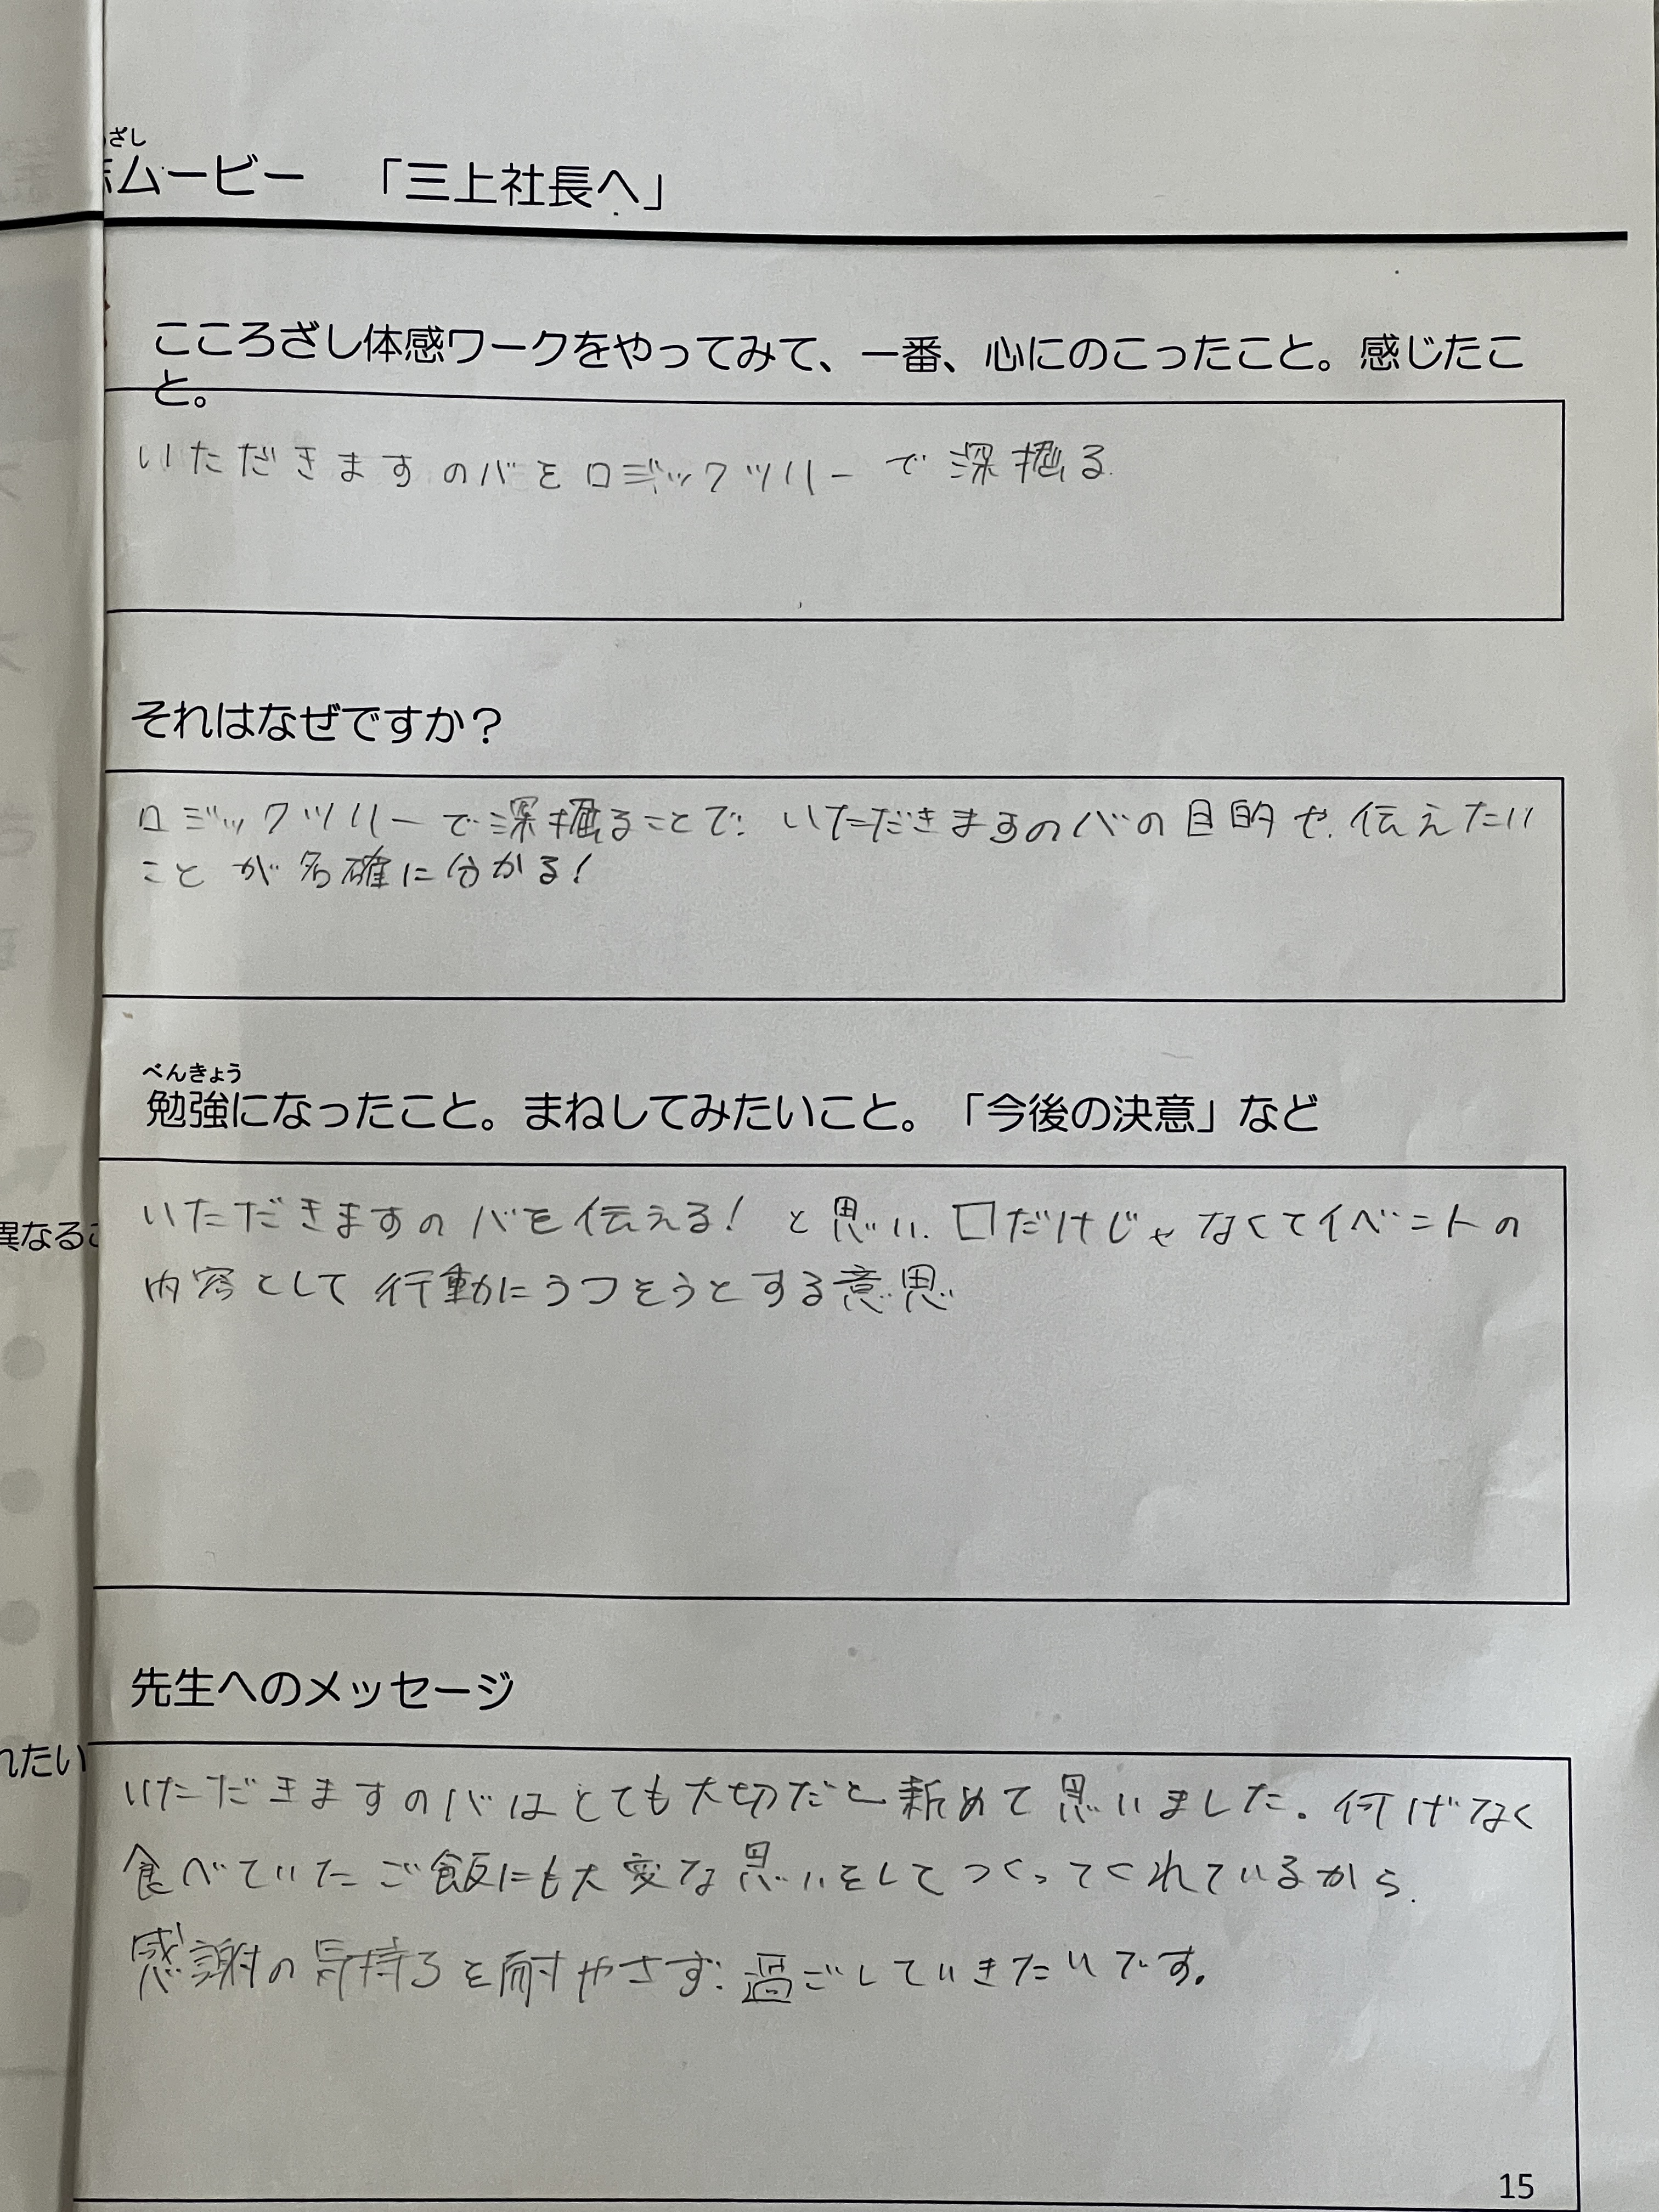 ざし
ムービー　「三上社長へ」
こころざし体感ワークをやってみて、一番、心にのこったこと。感じたこ
と。
いただきますのバをロジックツリーで深掘る
それはなぜですか？
ロジックツリーで深掘ることで、いただきますのバの目的や、伝えたい
ことが名確に分かる！
べんきょう
勉強になったこと。まねしてみたいこと。「今後の決意」など
いただきますのバを伝える！と思い、口だけじゃなくてイベントの
内容として行動にうつそうとする意思
異なるこ
先生へのメッセージ
れたい
いただきますのバはとても大切だと新めて思いました。何げなく
食べていたご飯にも大変な思いをしてつくってくれているから、
感謝の気持ちを耐やさず、過ごしていきたいです。
15